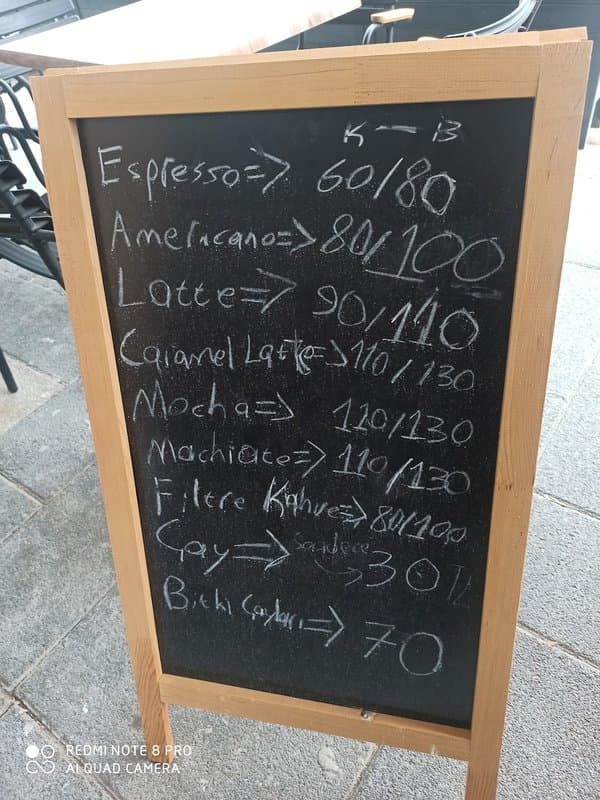 K — B
Espresso=> 60/80
Americano=> 80/100
Latte=> 90/110
Caramel Latte=> 110/130
Mocha=> 110/130
Machiate=> 110/130
Filtre Kahve=> 80/100
Çay=> Sadece 30TL
Bitki Çayları=> 70
REDMI NOTE 8 PRO
AI QUAD CAMERA